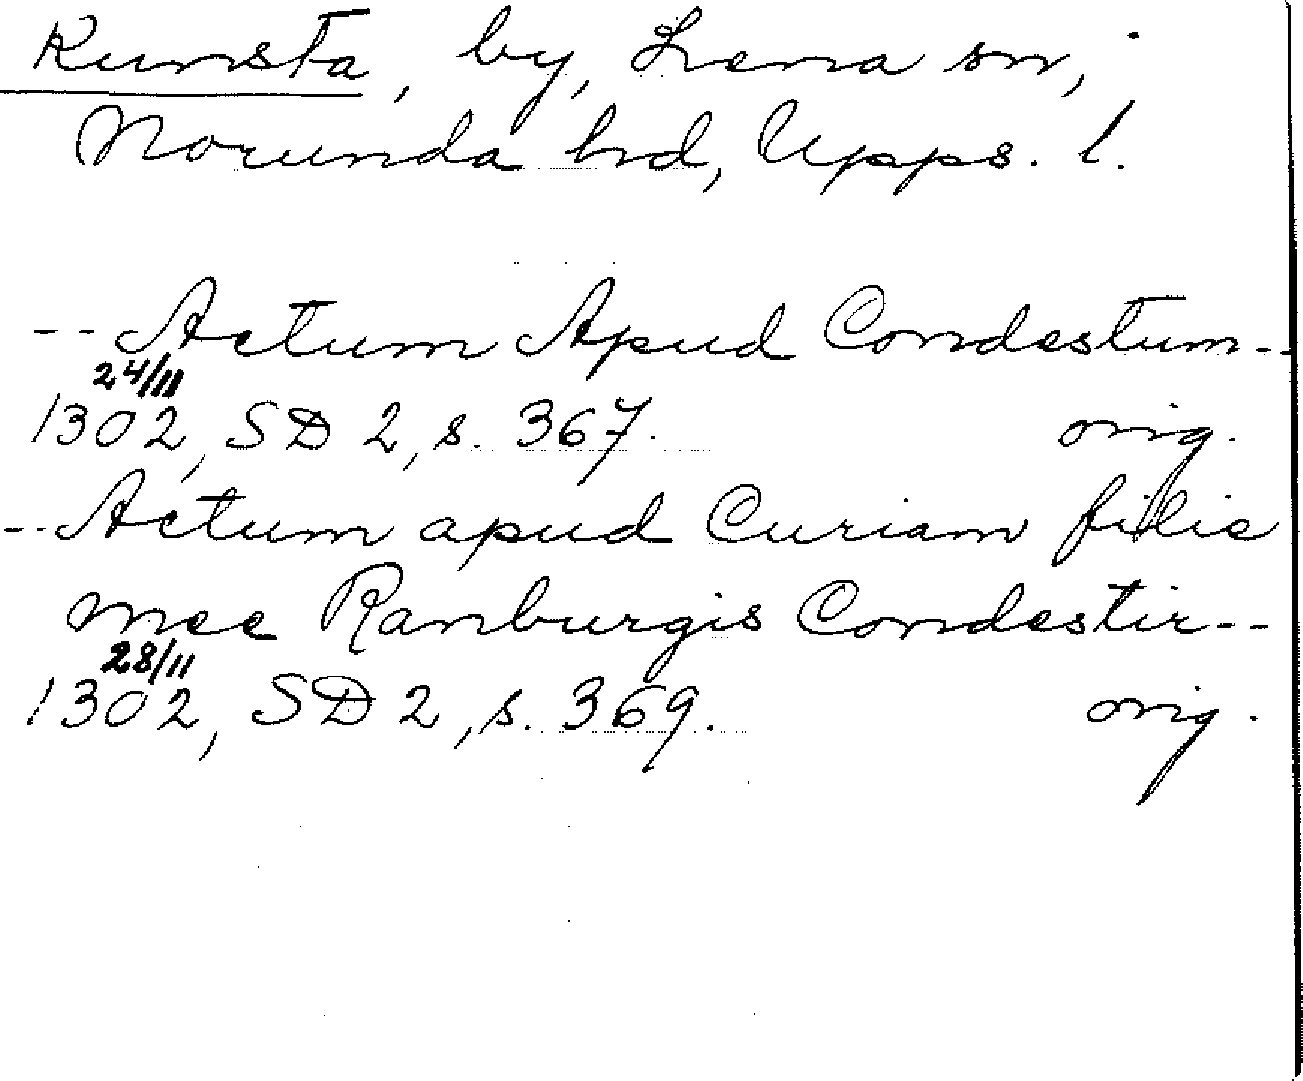 Kumsta, by, Lena sn,
Norunda hd, Upps. l.
-- Actum Apud Condestum --
24/11
1302, SD 2, s. 367. orig.
-- Actum apud Curiam filie
mee Ramburgis Condestir --
28/11
1302, SD 2, s. 369. orig.